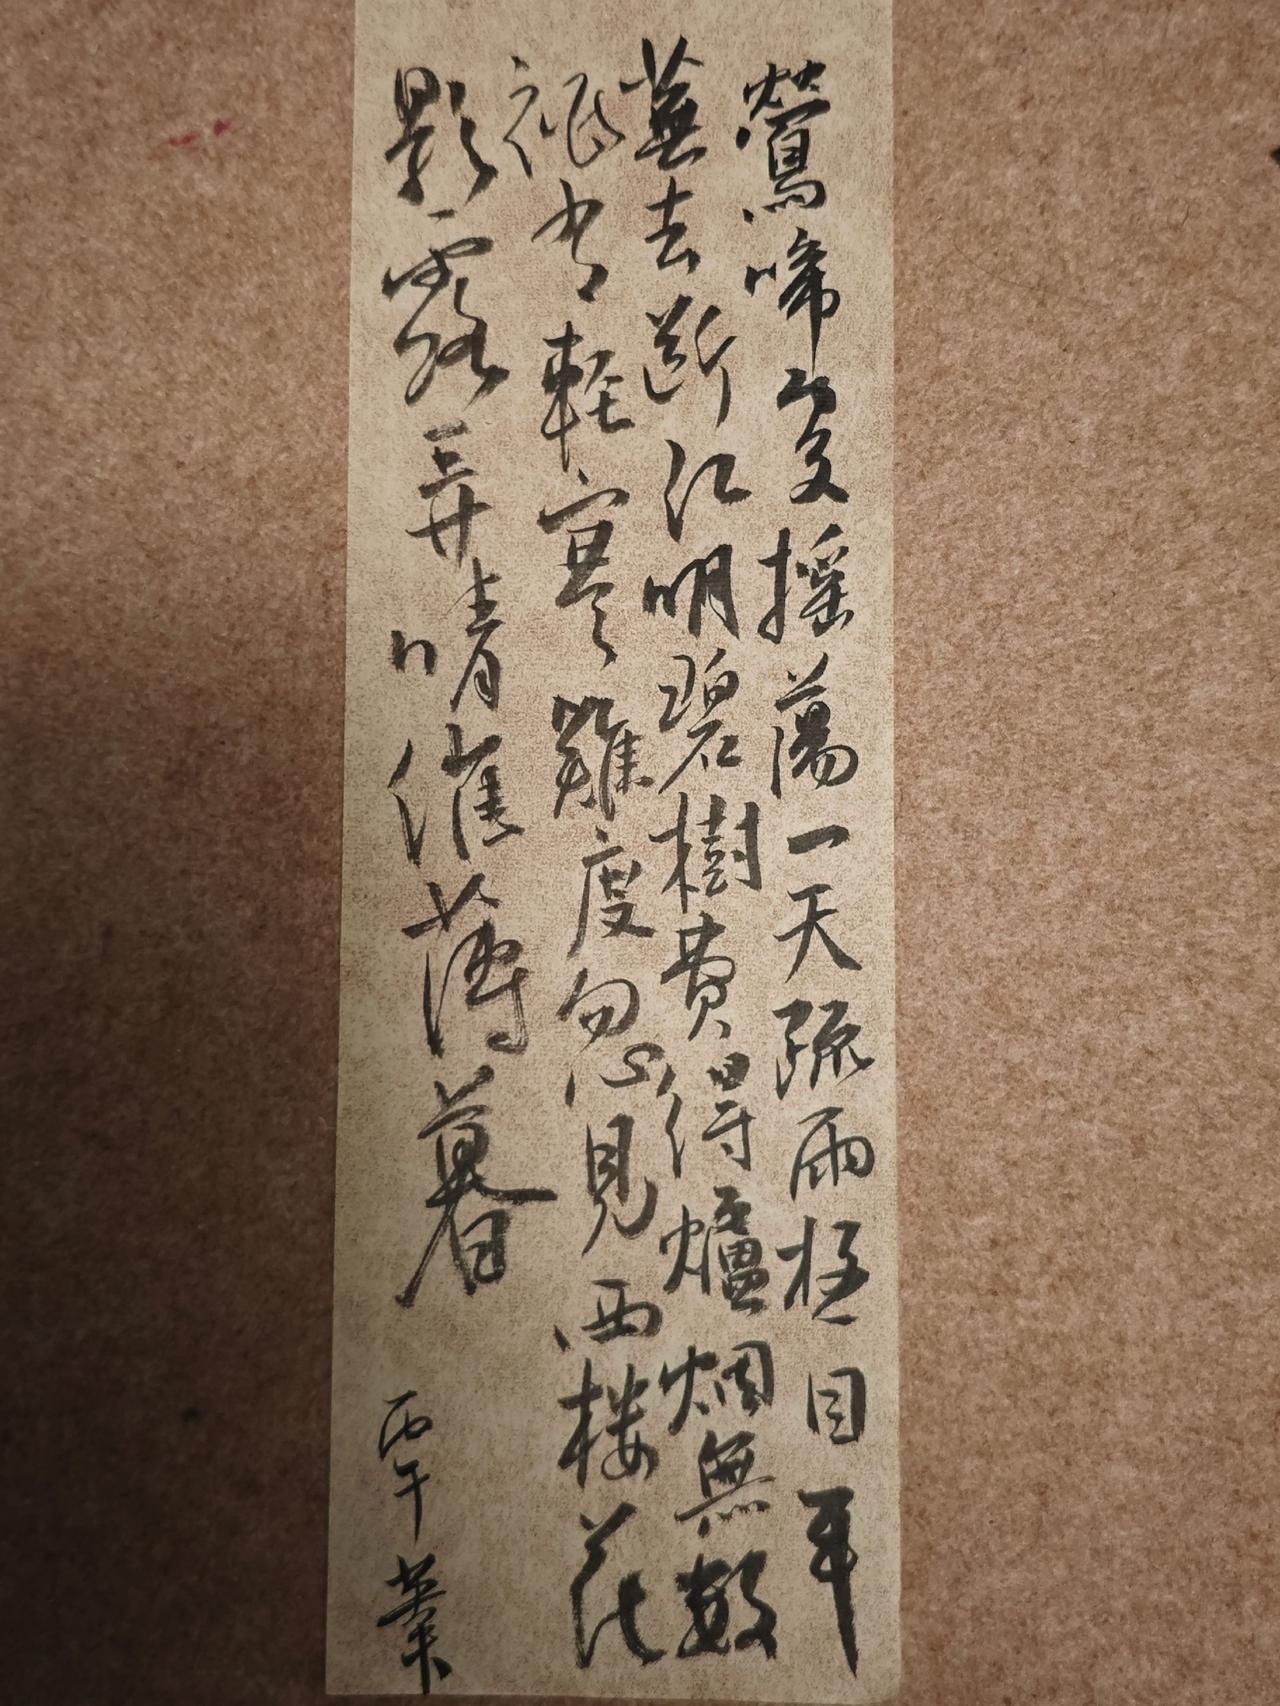 鶯啼處搖蕩一天疏雨極目平
蕪去斷江明碧樹費得爐烟無數
祇有輕寒難度忽見西樓花
影露弄晴催薄暮
丙午葉